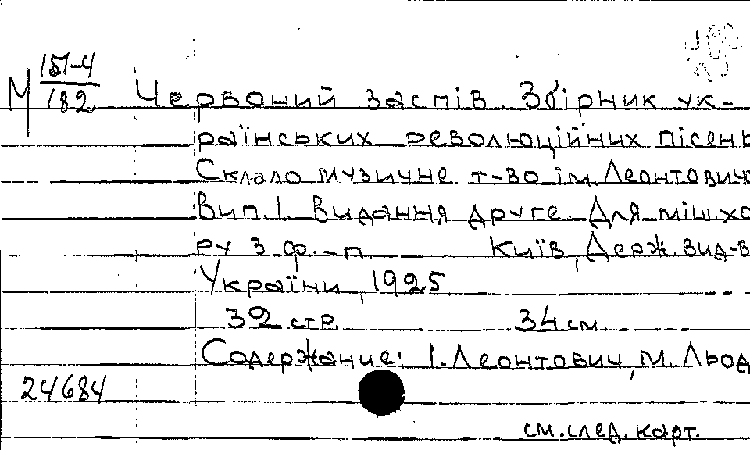 М 151-4/182 Червоний заспів. Збірник ук-
раїнських революційних пісень
Склало музичне т-во ім. Леонтовича
Вип. I. Видання друге. Для міш. хо
ру з ф.-п. Київ, Держ. вид-в
України, 1925.
32 стр. 34 см.
Содержание: 1. Леонтович, М. Льод
24684
см. след. карт.